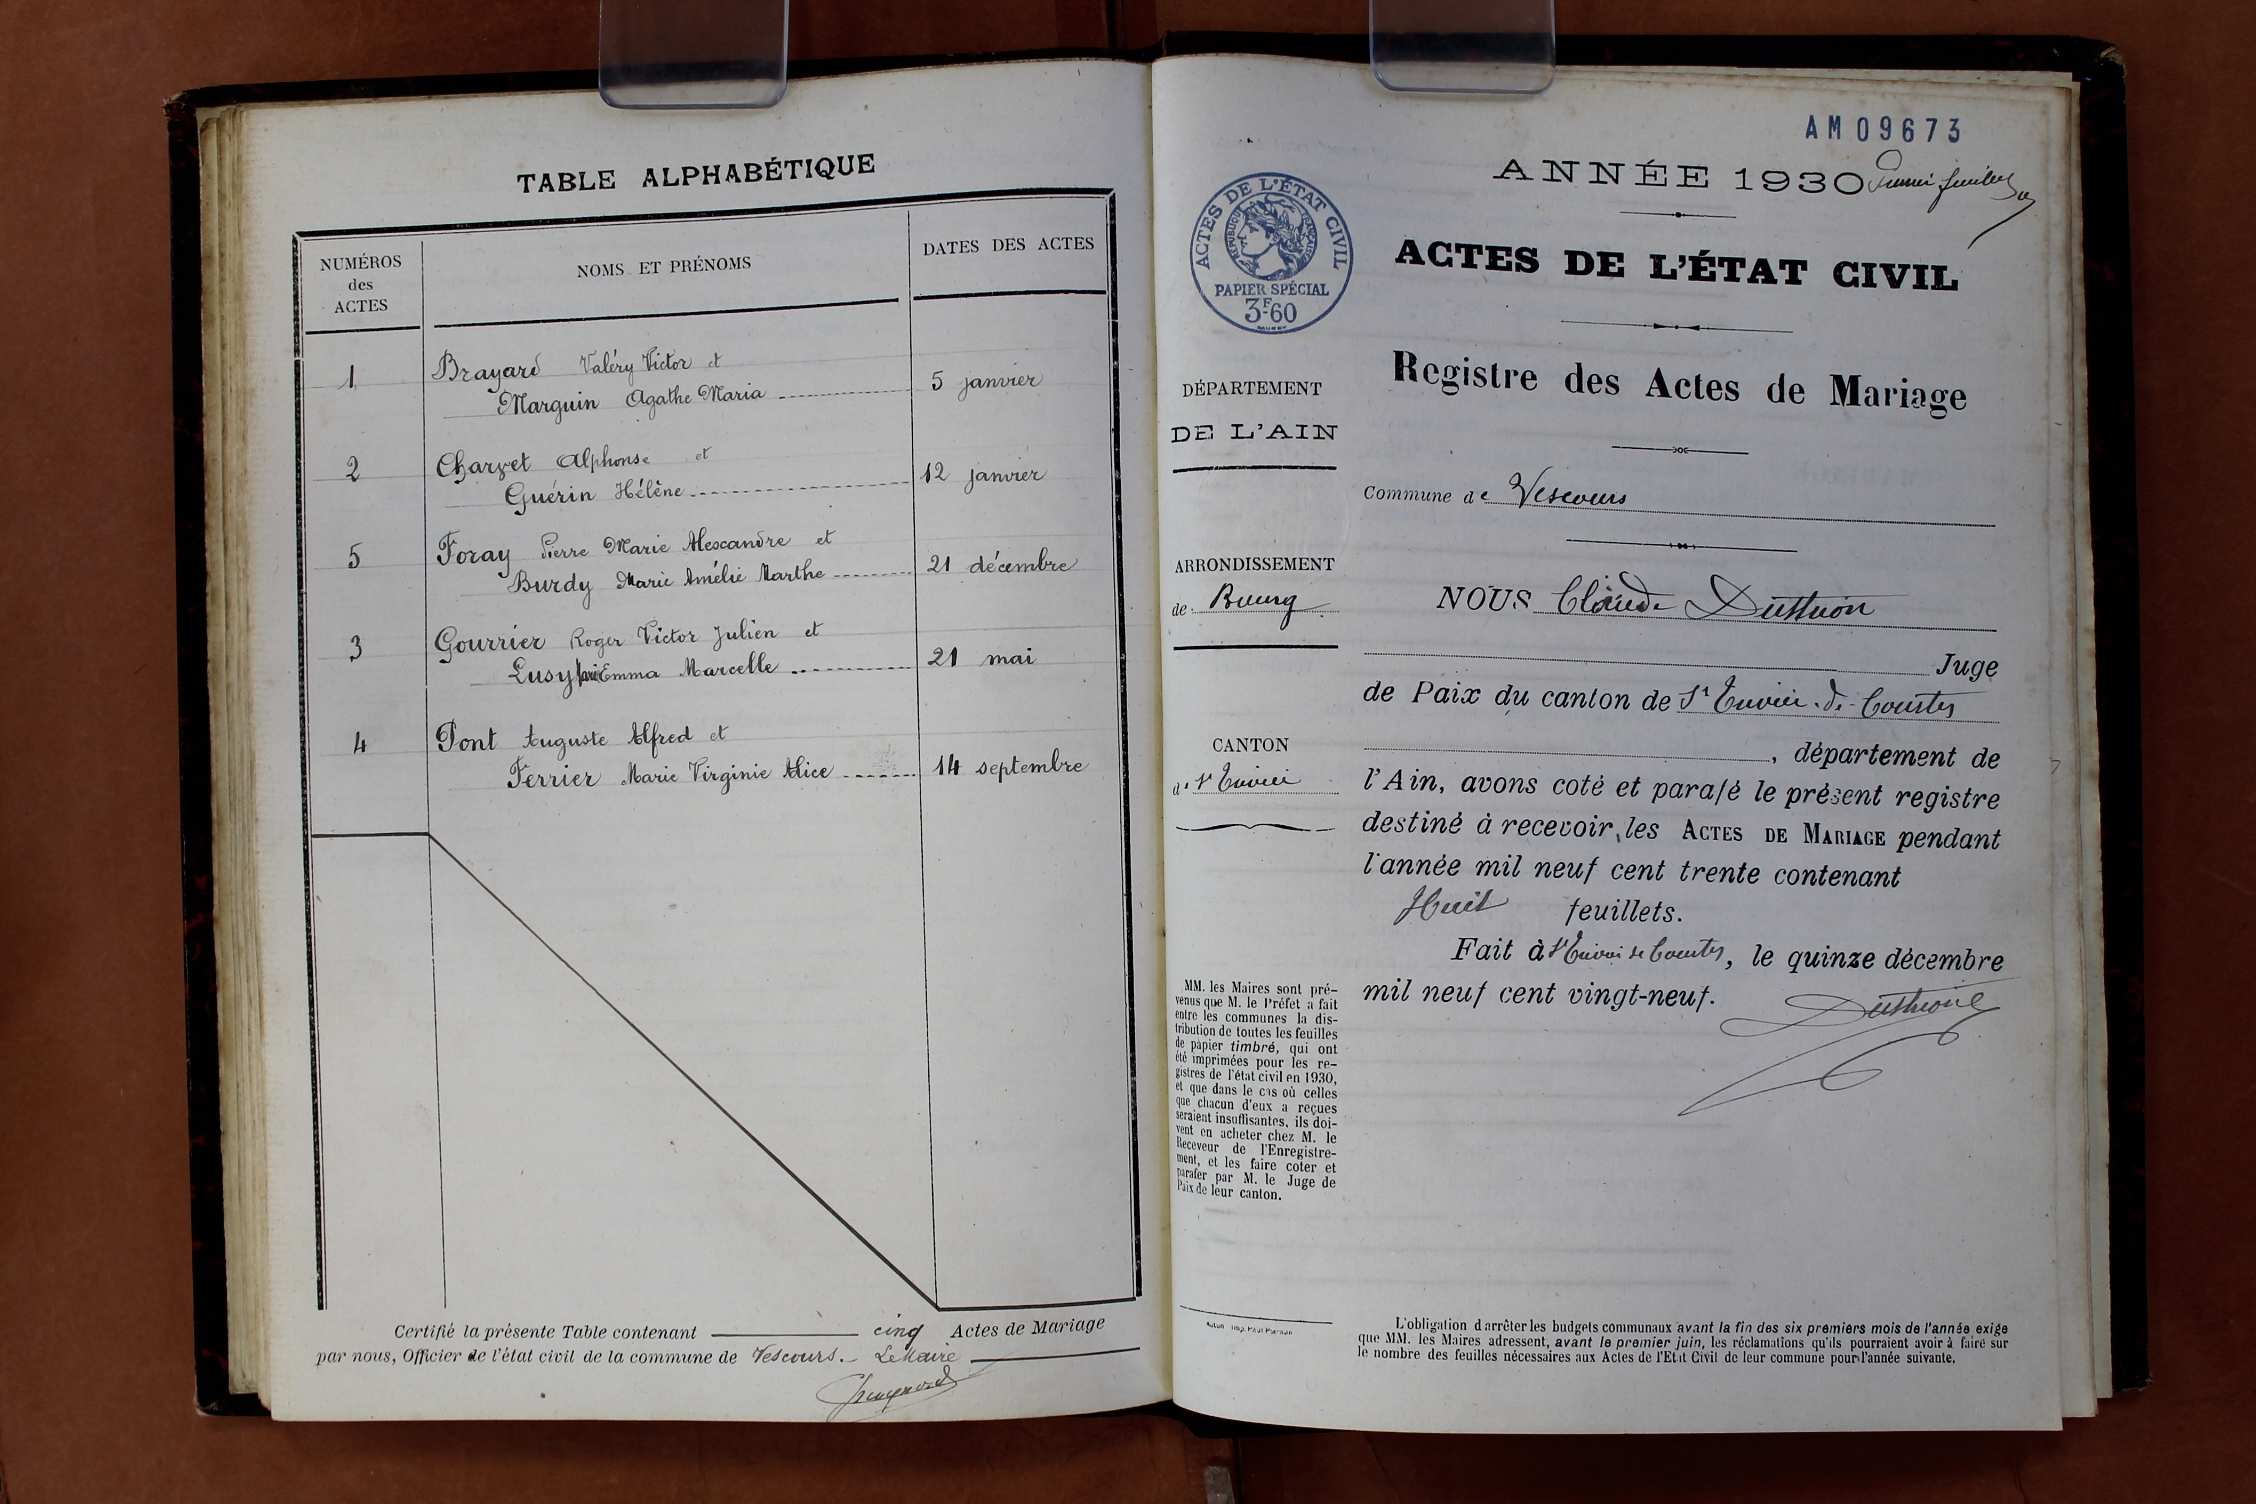 TABLE ALPHABÉTIQUE
NUMÉROS des ACTES
NOMS ET PRÉNOMS
DATES DES ACTES
1 Brayard Valéry Victor et
Marguin Agathe Maria 5 janvier
2 Charvet Alphonse et
Guérin Hélène 12 janvier
5 Foray Pierre Marie Alexandre et
Burdy Marie Amélie Marthe 21 décembre
3 Gourrier Roger Victor Julien et
Lusy Emma Marcelle 21 mai
4 Pont Auguste Alfred et
Ferrier Marie Virginie Alice 14 septembre
Certifié la présente Table contenant cinq Actes de Mariage
par nous, Officier de l'état civil de la commune de Vescours. Le Maire
AM 09673
ANNÉE 1930 Premier feuillet
ACTES DE L'ÉTAT CIVIL
RÉPUBLIQUE FRANÇAISE
PAPIER SPÉCIAL
3F60
ACTES DE L'ÉTAT CIVIL
Registre des Actes de Mariage
DÉPARTEMENT
DE L'AIN
Commune de Vescours
ARRONDISSEMENT
de Bourg
NOUS Claude
Juge
de Paix du canton de St Trivier-de-Courtes
CANTON
de St Trivier
, département de
l'Ain, avons coté et parafé le présent registre
destiné à recevoir les ACTES DE MARIAGE pendant
l'année mil neuf cent trente contenant
Huit feuillets.
Fait à St Trivier de Courtes, le quinze décembre
mil neuf cent vingt-neuf.
MM. les Maires sont pré-
venus que M. le Préfet a fait
entre les communes la dis-
tribution de toutes les feuilles
de papier timbré, qui ont
été imprimées pour les re-
gistres de l'état civil en 1930,
et que dans le cas où celles
que chacun d'eux a reçues
seraient insuffisantes, ils doi-
vent en acheter chez M. le
Receveur de l'Enregistre-
ment, et les faire coter et
parafer par M. le Juge de
Paix de leur canton.
L'obligation d'arrêter les budgets communaux avant la fin des six premiers mois de l'année exige
que MM. les Maires adressent, avant le premier juin, les réclamations qu'ils pourraient avoir à faire sur
le nombre des feuilles nécessaires aux Actes de l'Etat Civil de leur commune pour l'année suivante.